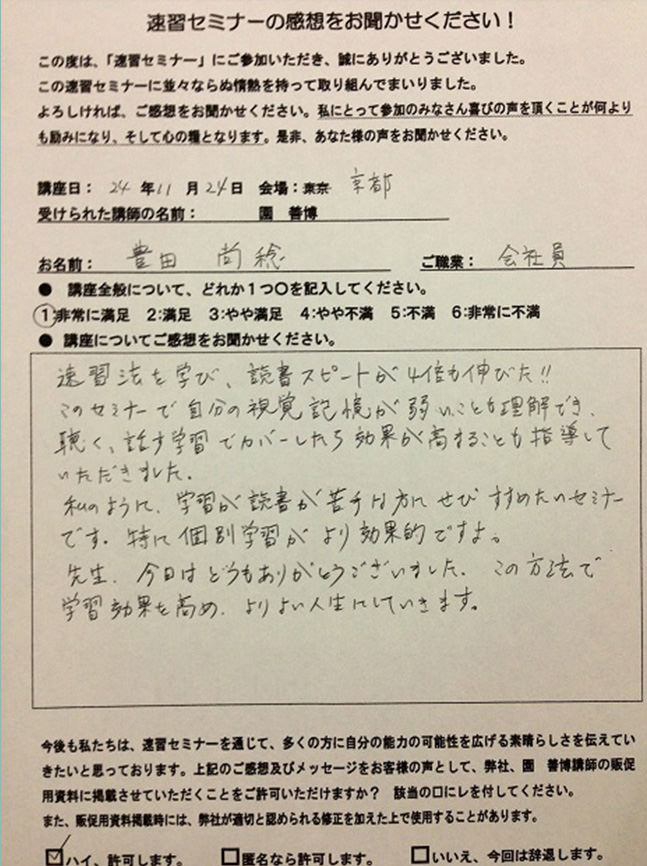 速習セミナーの感想をお聞かせください！
この度は、「速習セミナー」にご参加いただき、誠にありがとうございました。
この速習セミナーに並々ならぬ情熱を持って取り組んでまいりました。
よろしければ、ご感想をお聞かせください。私にとって参加のみなさん喜びの声を頂くことが何より
も励みになり、そして心の糧となります。是非、あなた様の声をお聞かせください。
講座日： 24 年 11 月 24 日 会場：東京 京都
受けられた講師の名前： 園 善博
お名前： 豊田 尚稔 ご職業： 会社員
● 講座全般について、どれか１つ○を記入してください。
1:非常に満足 2:満足 3:やや満足 4:やや不満 5:不満 6:非常に不満
● 講座についてご感想をお聞かせください。
速習法を学び、読書スピードが4倍も伸びた!!
このセミナーで自分の視覚記憶が弱いことも理解でき、
聴く、話す学習でカバーしたら効果が高まることも指導して
いただきました。
私のように、学習が読書が苦手な方にぜひすすめたいセミナー
です。特に個別学習がより効果的ですよ。
先生、今日はどうもありがとうございました。この方法で
学習効果を高め、よりよい人生にしていきます。
今後も私たちは、速習セミナーを通じて、多くの方に自分の能力の可能性を広げる素晴らしさを伝えてい
きたいと思っております。上記のご感想及びメッセージをお客様の声として、弊社、園 善博講師の販促
用資料に掲載させていただくことをご許可いただけますか？ 該当の口にレを付してください。
また、販促用資料掲載時には、弊社が適切と認められる修正を加えた上で使用することがあります。
☑ハイ、許可します。 □匿名なら許可します。 □いいえ、今回は辞退します。